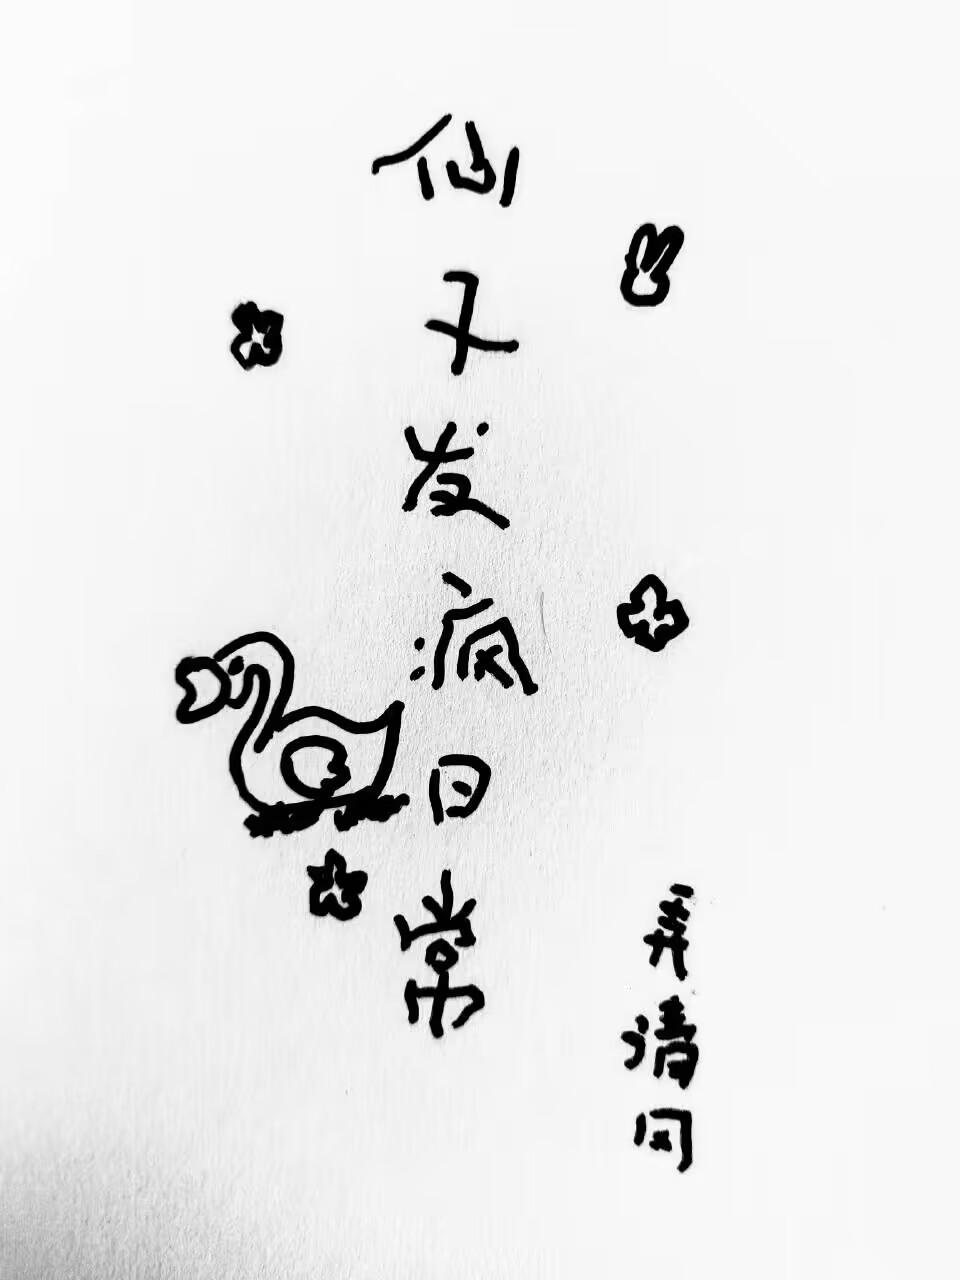 仙子发疯日常
弄清风